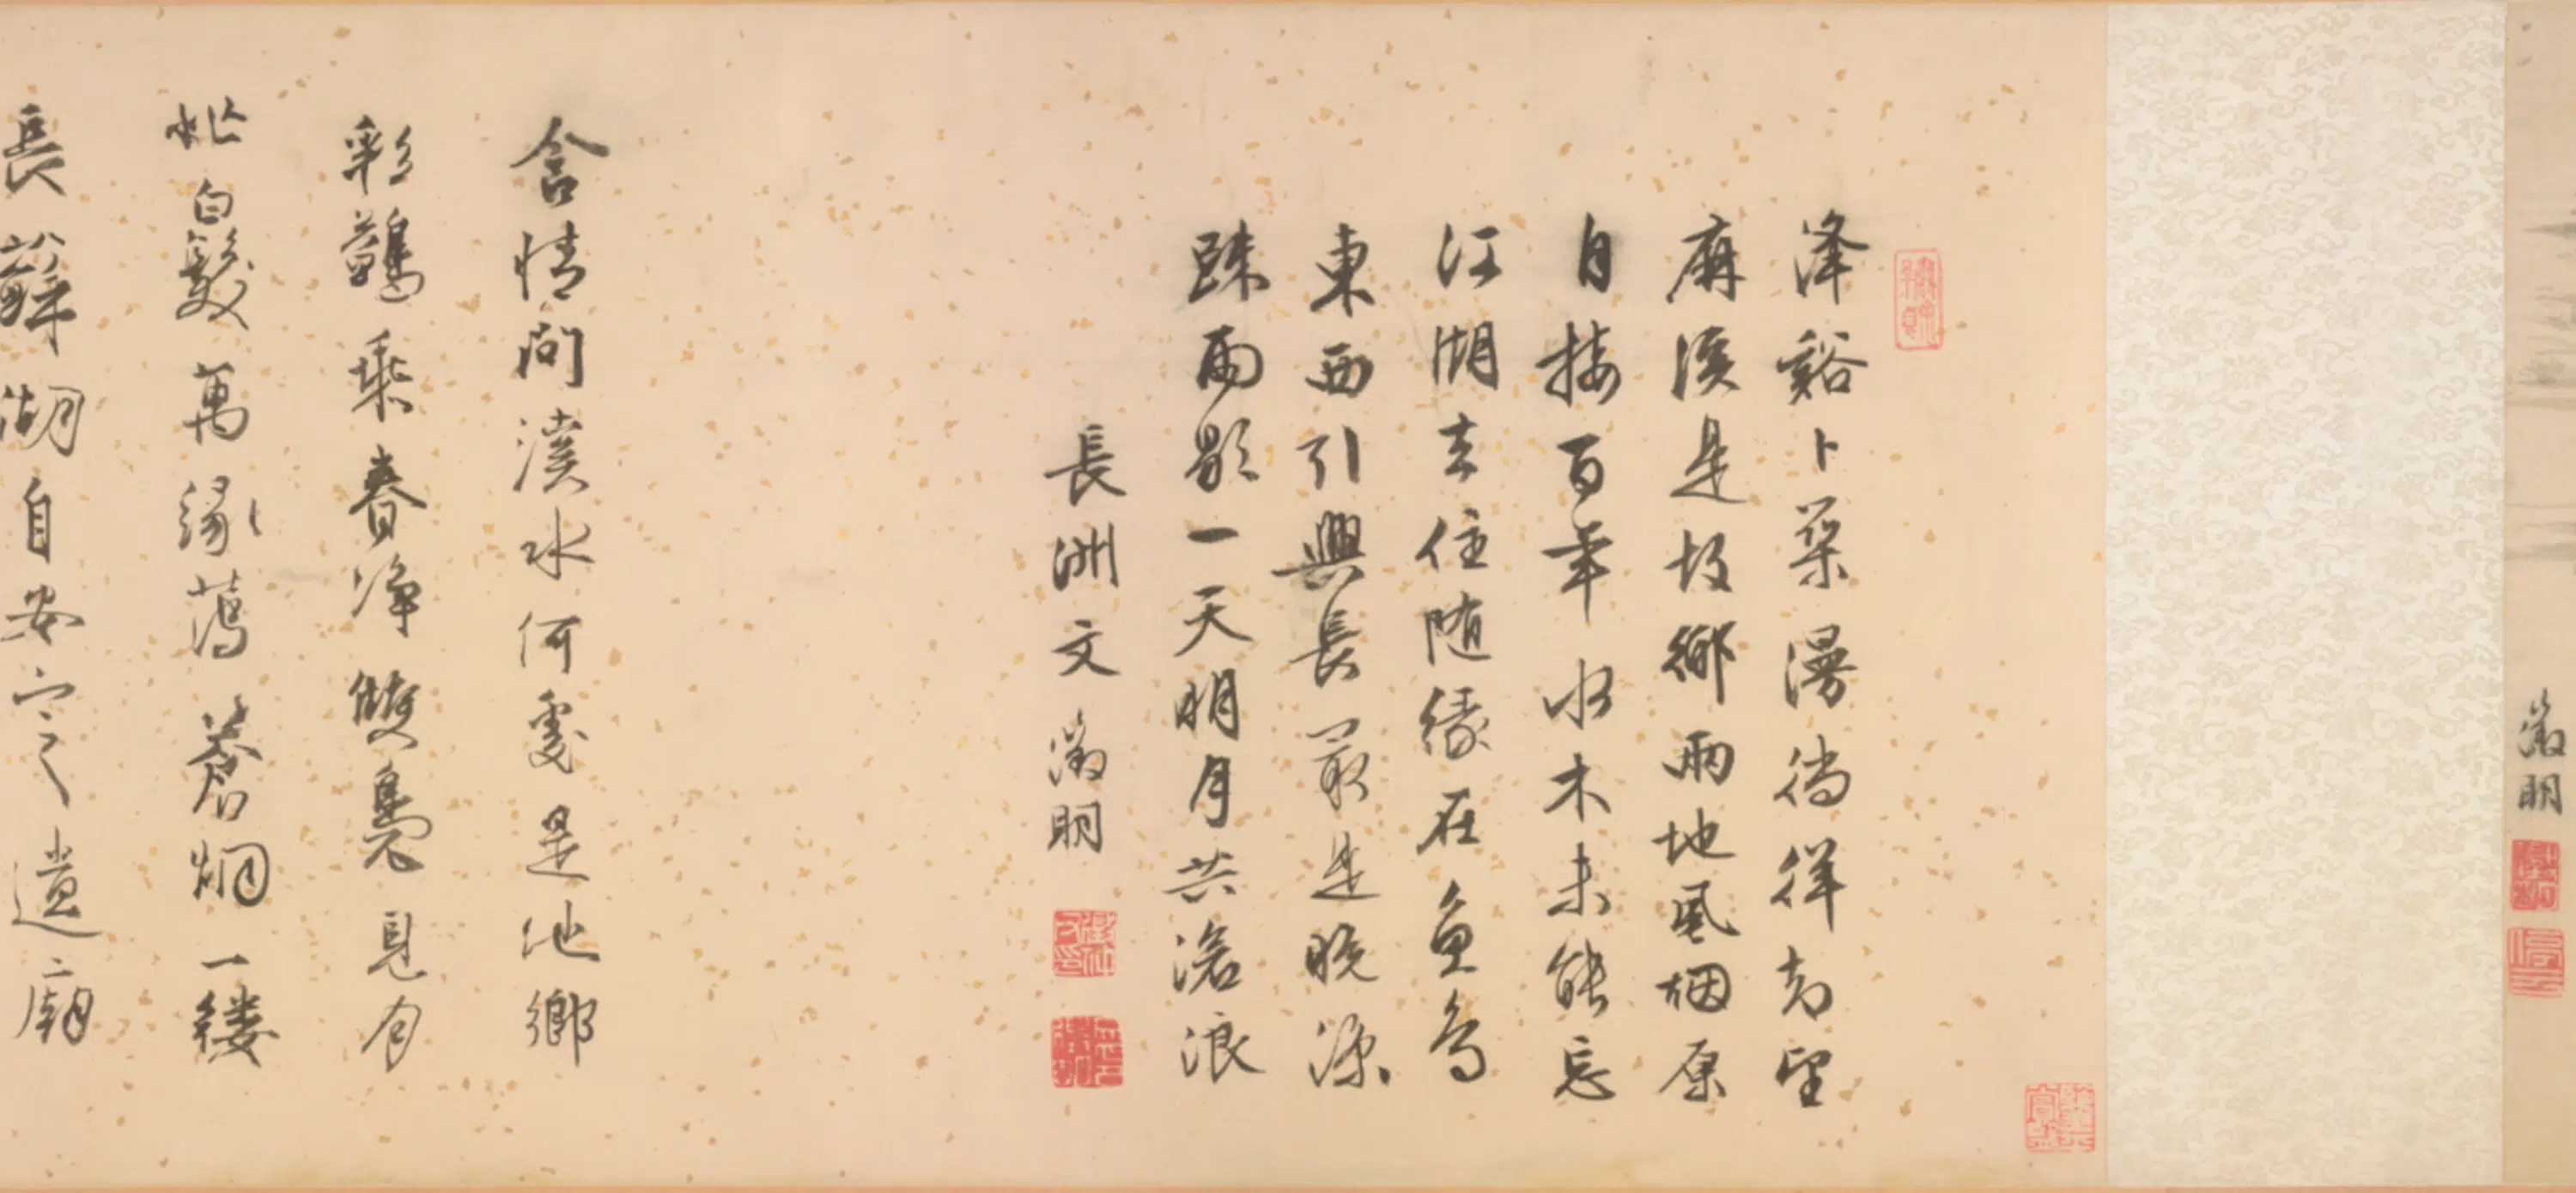 徵明
洚谿卜築漫徜徉却望
麻溪是故鄉兩地風烟原
自接百年水木未能忘
江湖去住隨緣在魚鳥
東西引興長最是晚涼
踈雨歇一天明月共滄浪
長洲文徵明
含情問溪水何處是他鄉
彩鷁乘春净雙鳧見月
忙白髮萬緣薄蒼烟一縷
長蘇湖自安定遺廟